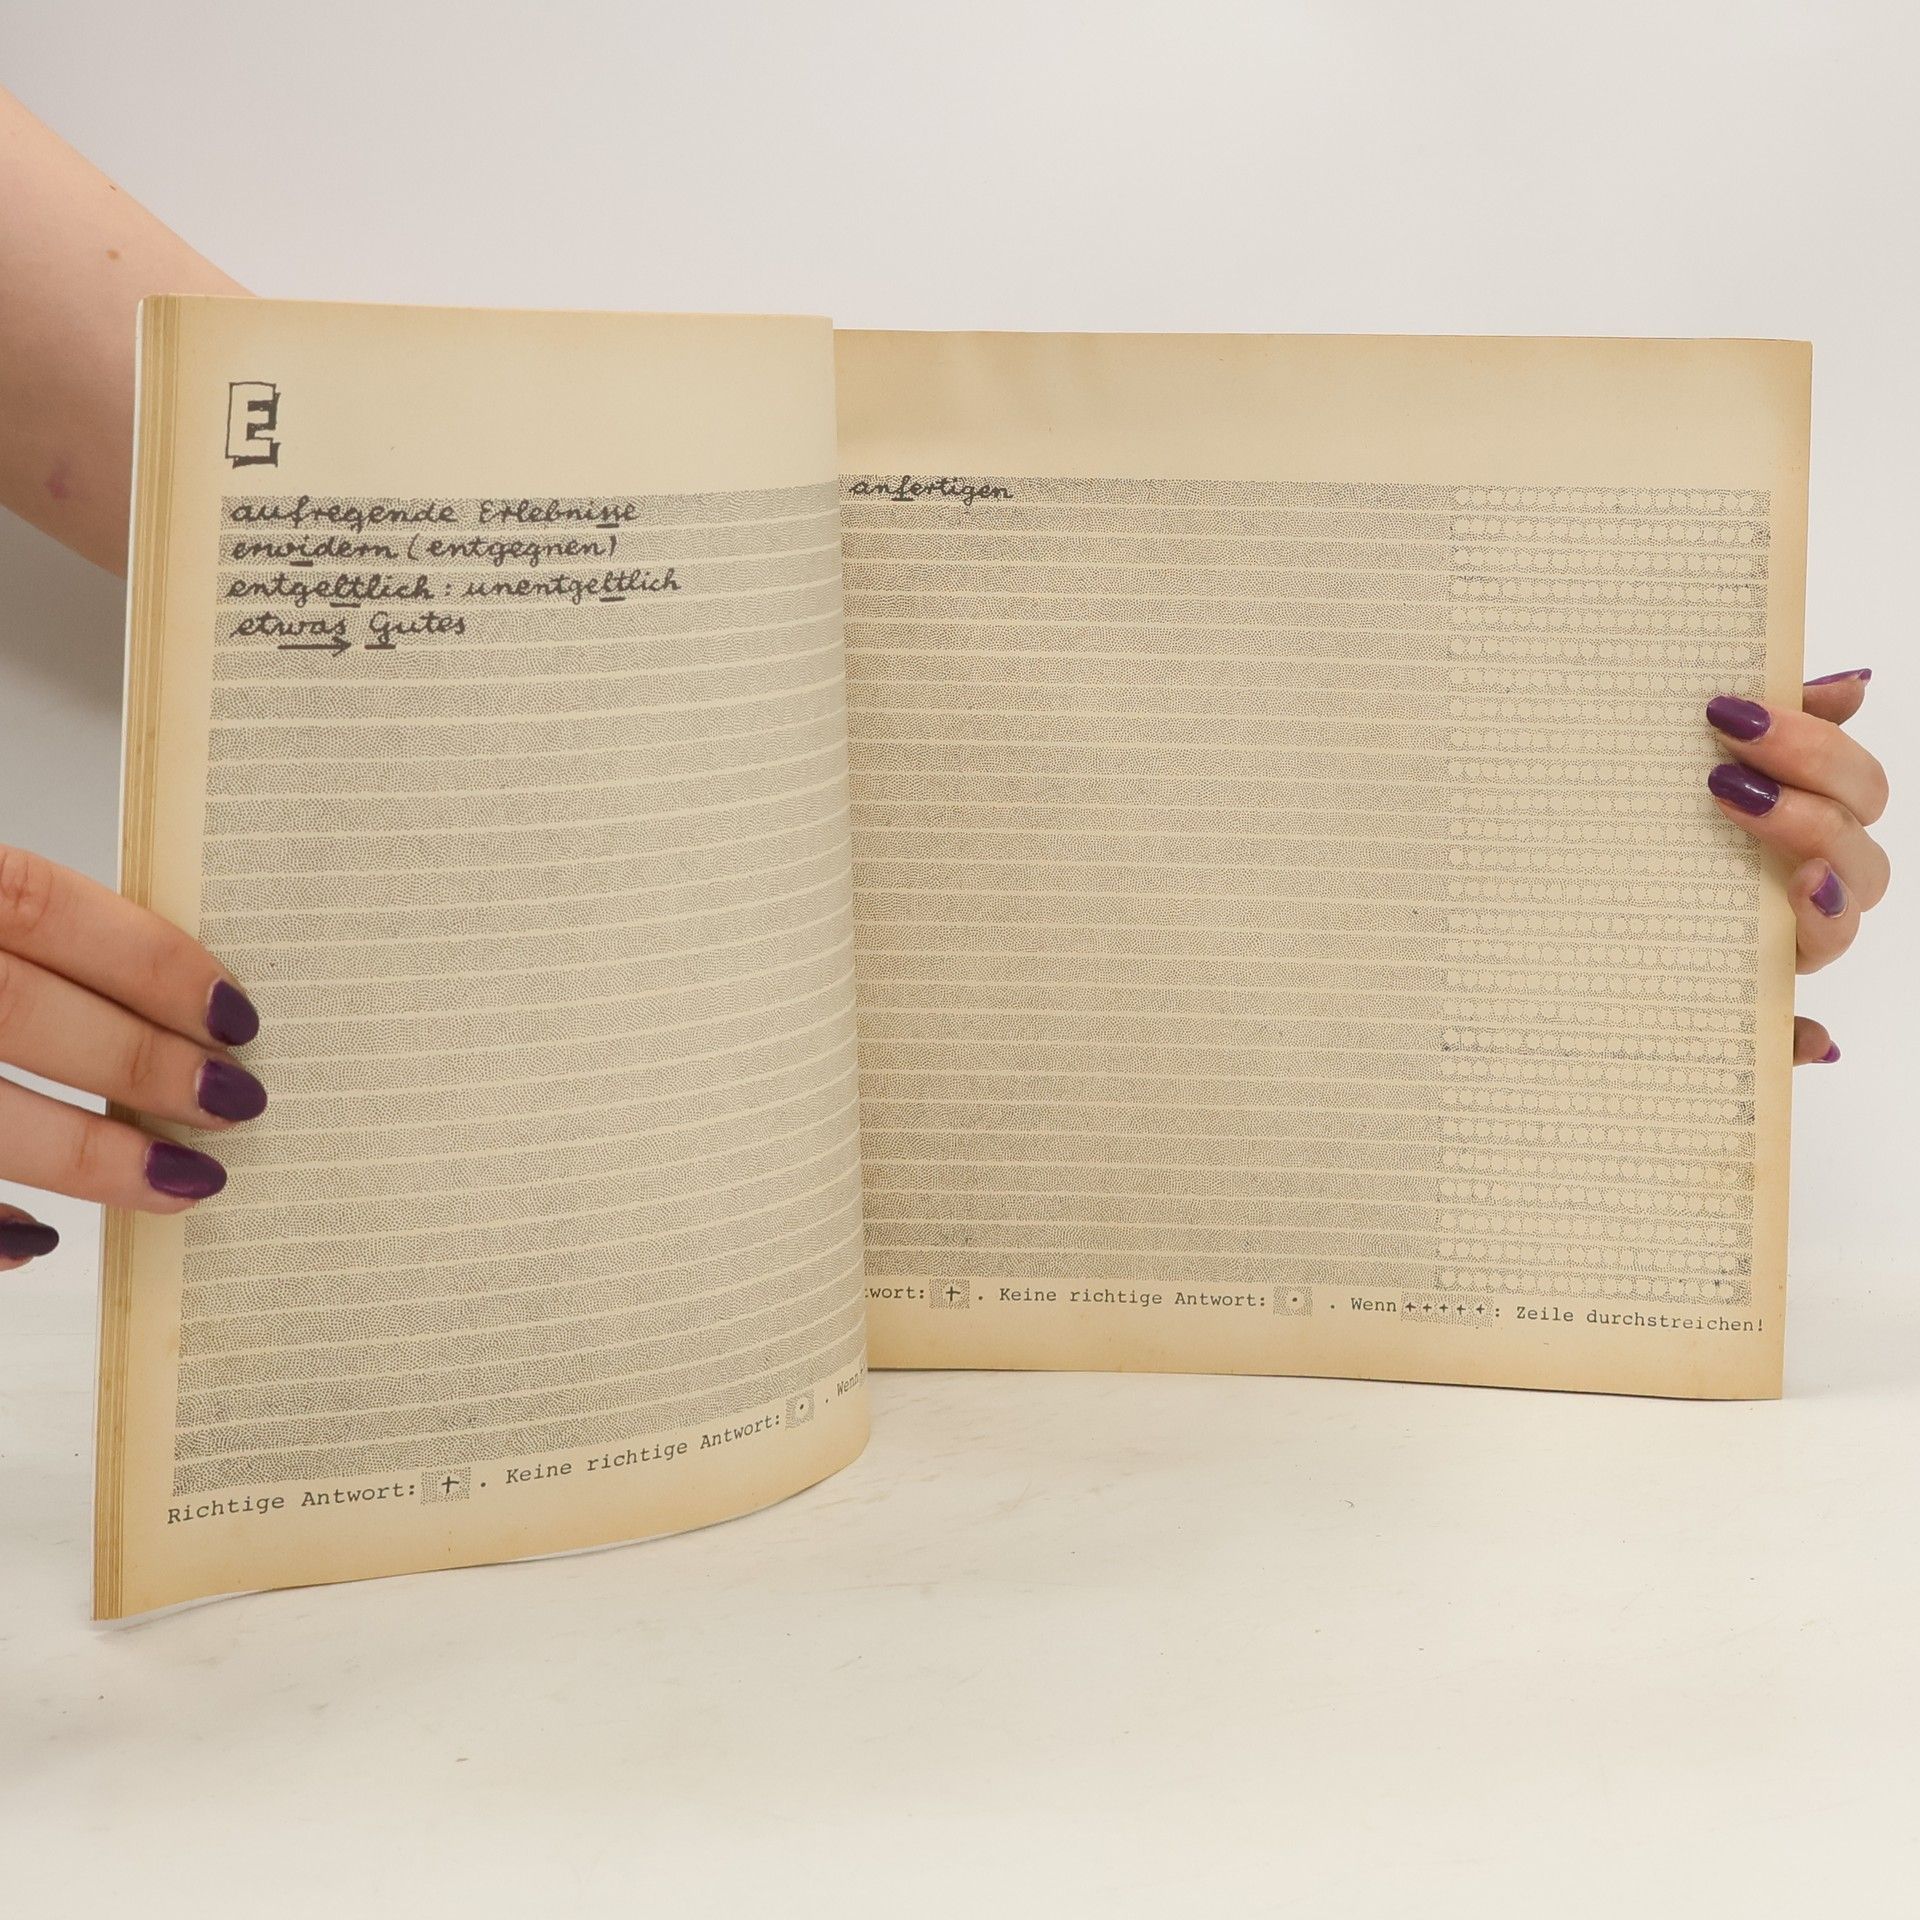 E
aufregende Erlebnisse
erwidern (entgegnen)
entgeltlich : unentgeltlich
etwas Gutes
Richtige Antwort: + . Keine richtige Antwort: · . Wenn
anfertigen
twort: + . Keine richtige Antwort: · . Wenn +++++: Zeile durchstreichen!